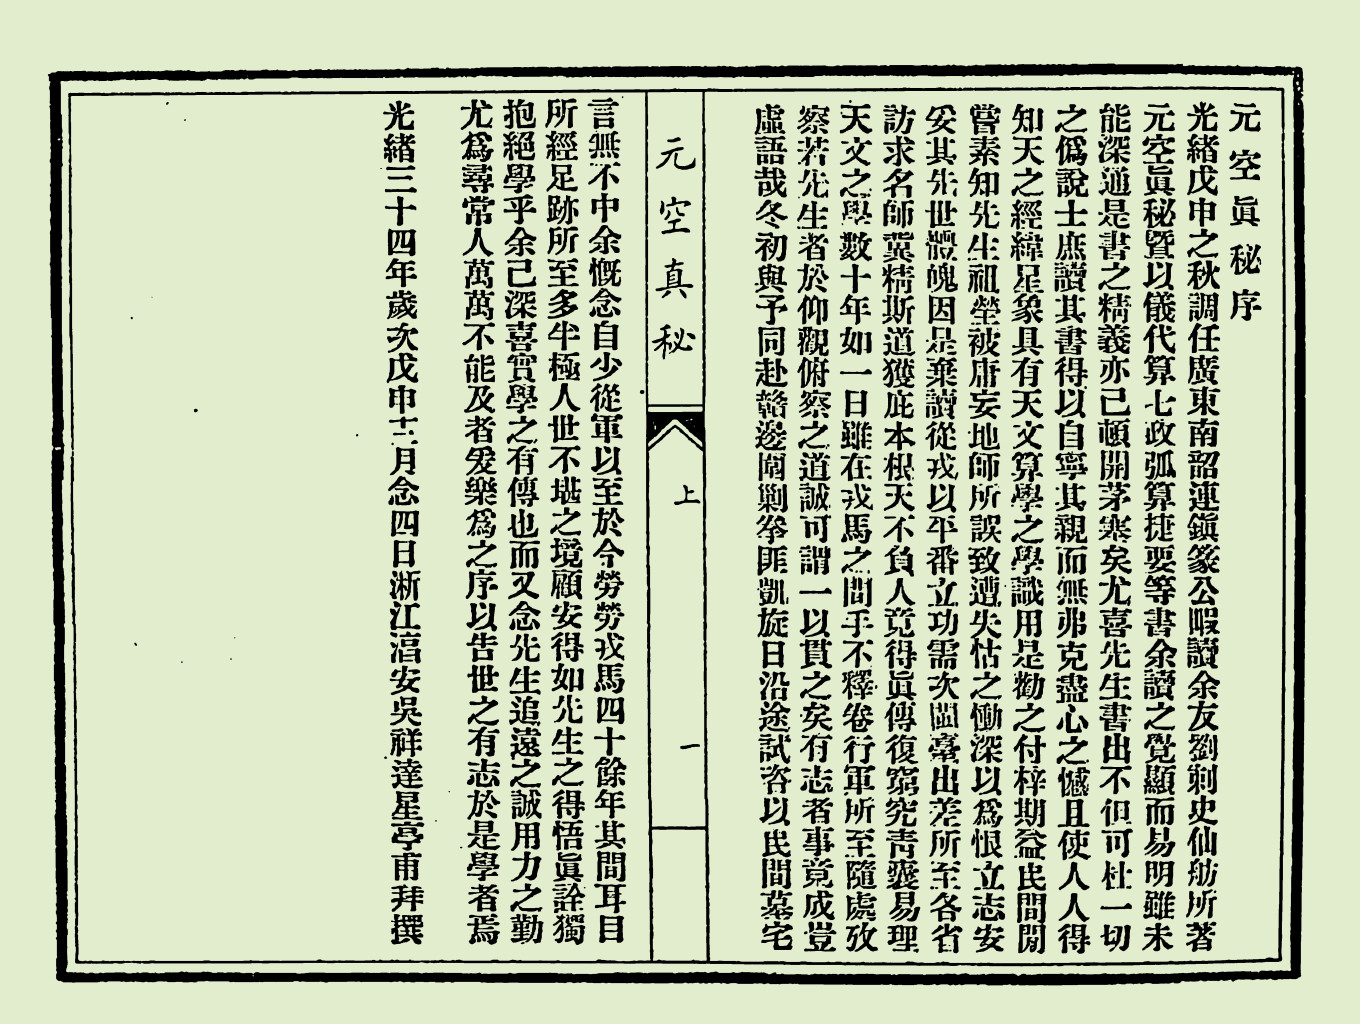 元空眞秘序
光緒戊申之秋調任廣東南韶連鎭篆公暇讀余友劉刺史仙舫所著
元空眞秘暨以儀代算七政弧算捷要等書余讀之覺顯而易明雖未
能深通是書之精義亦已頓開茅塞矣尤喜先生書出不但可杜一切
之僞說士庶讀其書得以自寧其親而無弗克盡心之憾且使人人得
知天之經緯星象具有天文算學之學識用是勸之付梓期益民間閒
嘗素知先生祖塋被庸妄地師所誤致遭失怙之慟深以爲恨立志安
妥其先世體魄因是棄讀從戎以平番立功需次閩臺出差所至各省
訪求名師冀精斯道獲庇本根天不負人竟得眞傳復窮究靑囊易理
天文之學數十年如一日雖在戎馬之間手不釋卷行軍所至隨處攷
察若先生者於仰觀俯察之道誠可謂一以貫之矣有志者事竟成豈
虛語哉冬初與予同赴贛邊剿拳匪凱旋日沿途試咨以民間墓宅
元空真秘
上
一
言無不中余慨念自少從軍以至於今勞勞戎馬四十餘年其間耳目
所經足跡所至多半極人世不堪之境顧安得如先生之得悟眞詮獨
抱絕學乎余已深喜實學之有傳也而又念先生追遠之誠用力之勤
尤爲尋常人萬萬不能及者爰樂爲之序以告世之有志於是學者焉
光緒三十四年歲次戊申十二月念四日浙江安吳祥達星亭甫拜撰